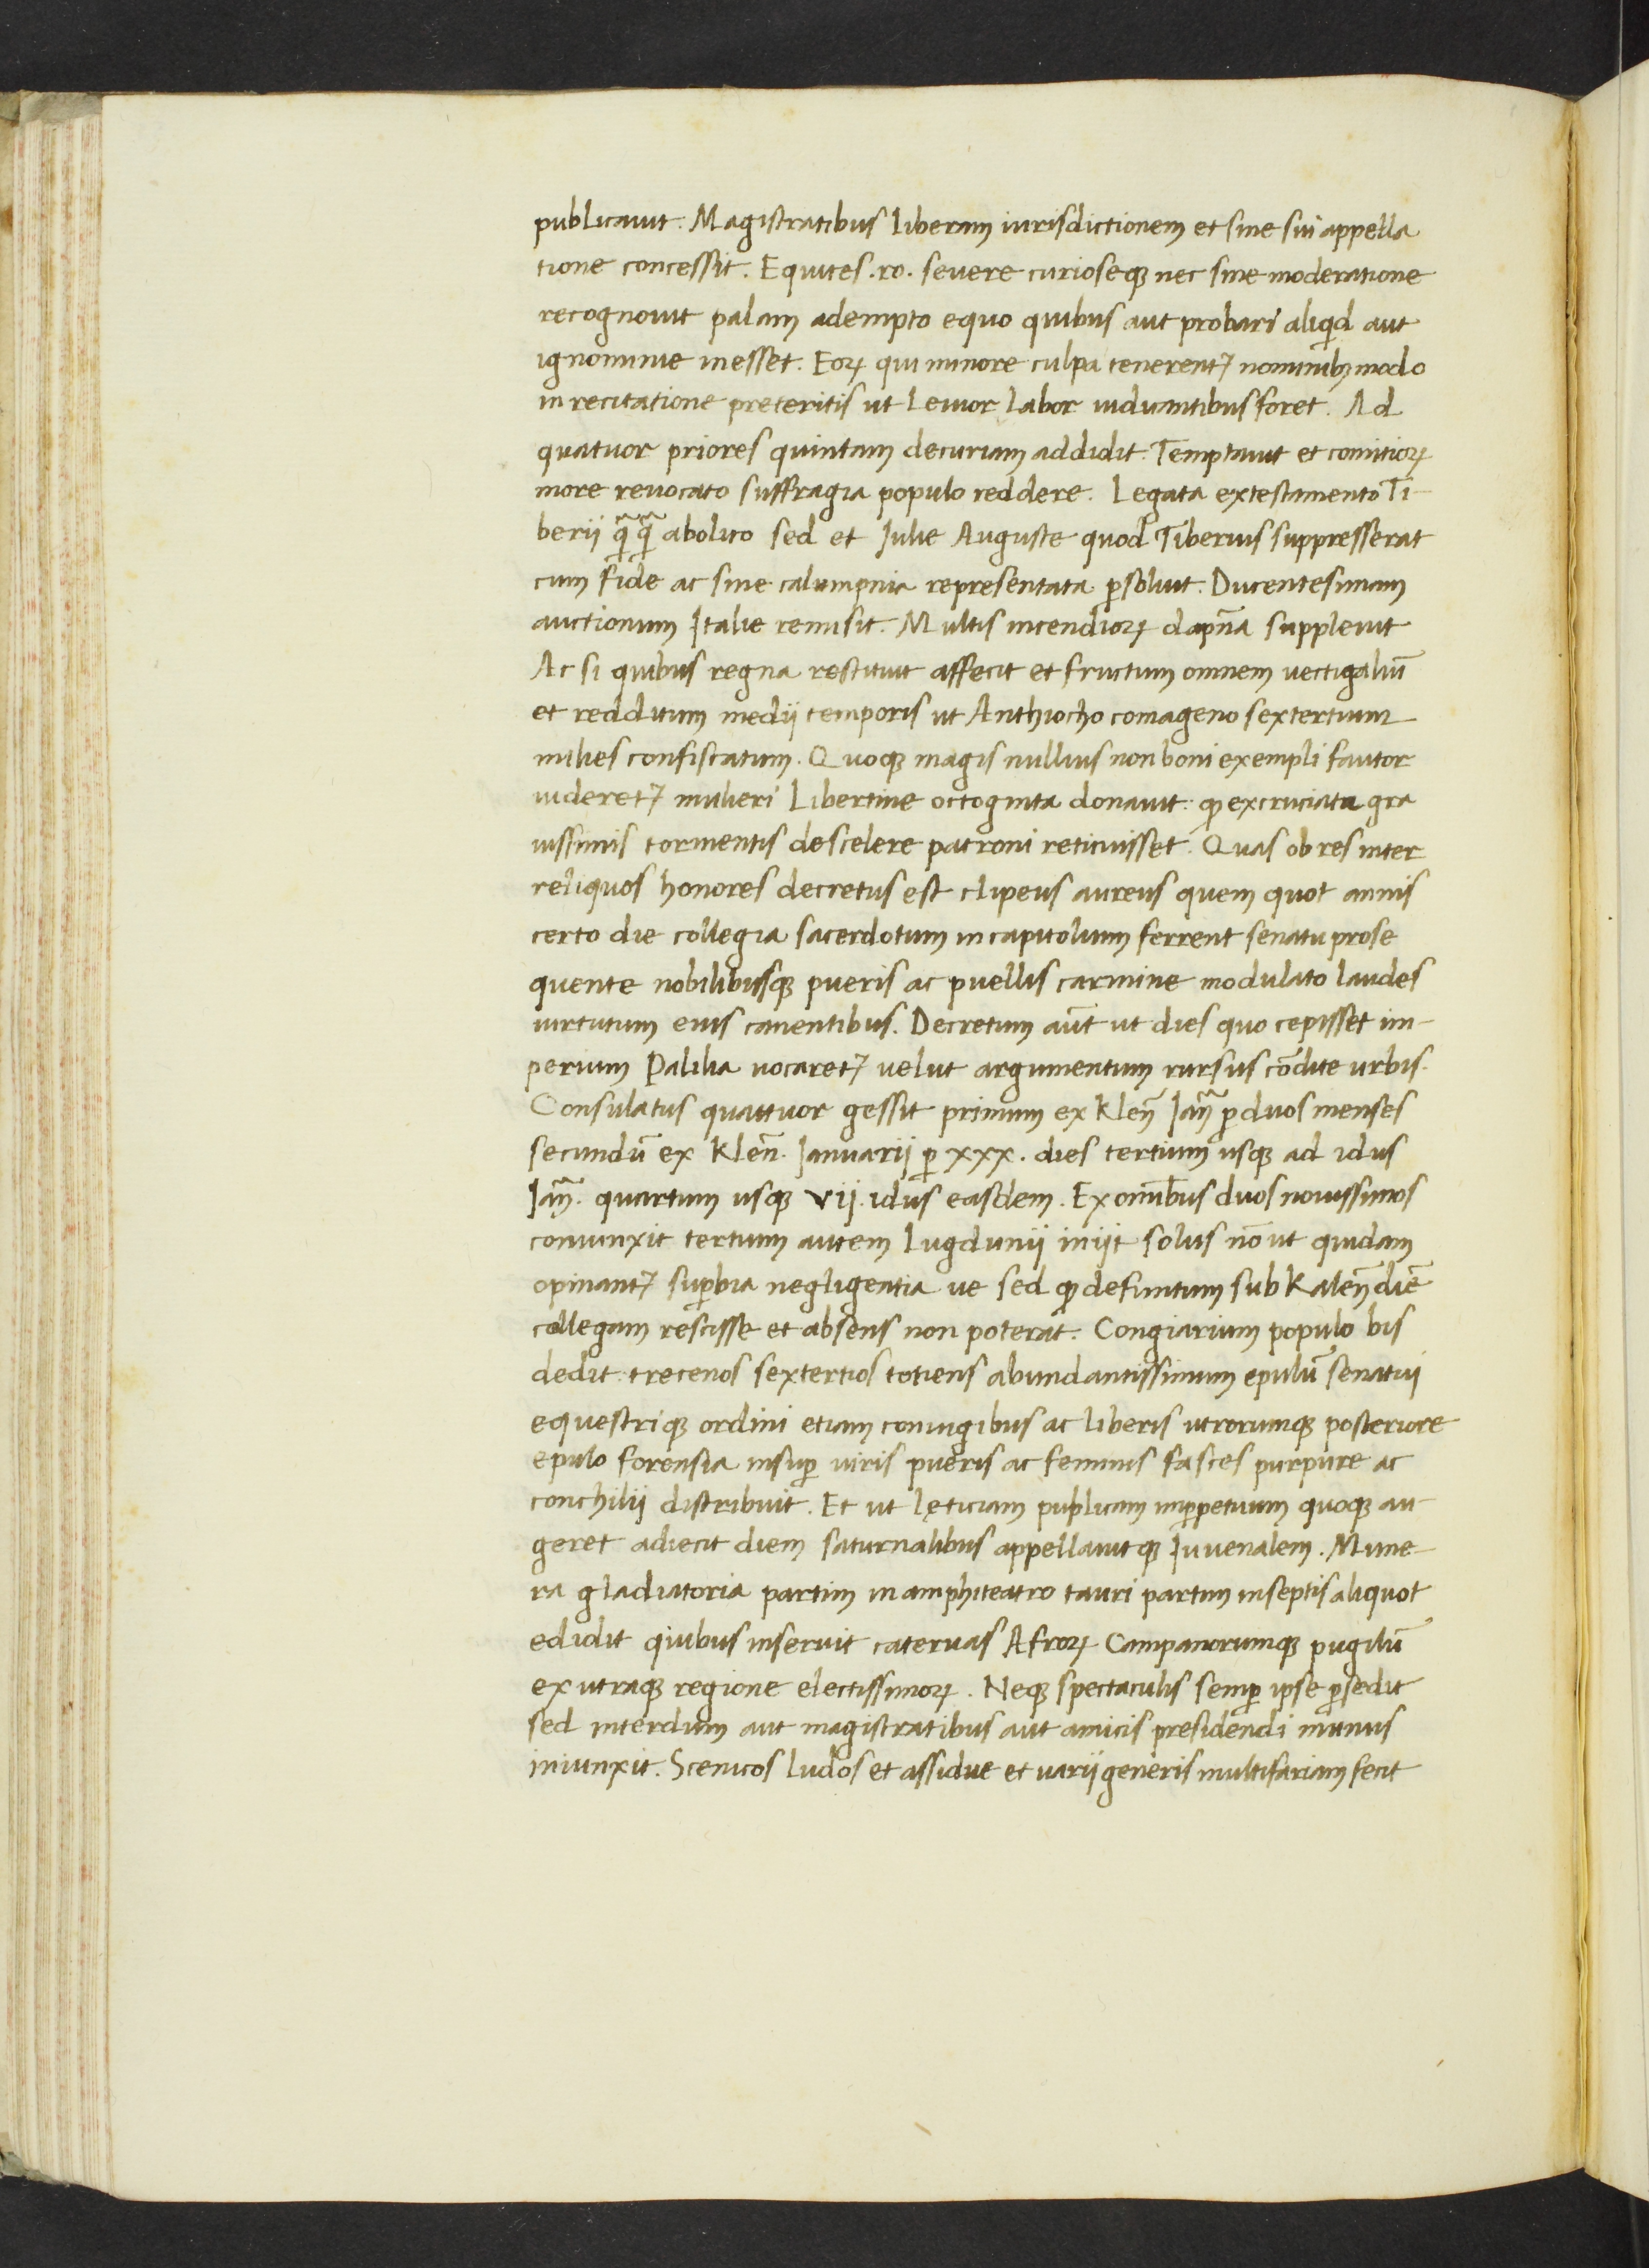 publicauit. Magistratibus liberam iurisdictionem et sine sui appella
tione concessit. Equites .ro. seuere curioseqꝫ nec sine moderatione
recognouit palam adempto equo quibus aut probari aliqd aut
ignominie inesset. Eoꝝ qui minore culpa tenerentꝰ nominibꝫ modo
in recitatione preteritis ut leuior labor iudicantibus foret. Ad
quatuor priores quintam decuriam addidit. Temptauit et comitioꝝ
more reuocato suffragia populo reddere. Legata ex testamento Ti-
berii q̃q̃ abolito sed et Iulie Auguste quod Tiberius suppresserat
cum fide ac sine calumpnia representata ꝑsoluit. Ducentesimam
auctionum Italie remisit. Multis incendioꝝ dapña suppleuit
Ac si quibus regna restituit affecit et fructum omnem uectigaliũ
et redditum medii temporis ut Anthiocho comageno sextertium
milies confiscatum. Quoqꝫ magis nullius non boni exempli fautor
uideretꝰ mulieri libertine octoginta donauit: ꝙ excruciata gra
uissimis tormentis de scelere patroni reticuisset. Quas ob res inter
reliquos honores decretus est clipeus aureus quem quot annis
certo die collegia sacerdotum in capitolium ferrent senatu prose
quente nobilibusqꝫ pueris ac puellis carmine modulato laudes
uirtutum eius canentibus. Decretum aũt ut dies quo cepisset im-
perium Palilia uocaretꝰ uelut argumentum rursus cõdite urbis.
Consulatus quattuor gessit primum ex Kleñ Iañ ꝑ duos menses
secundũ ex Kleñ. Ianuarii ꝑ xxx. dies tertium usqꝫ ad idus
Iañ. quartum usqꝫ vii. idus easdem. Ex omnibus duos nouissimos
coniunxit tertium autem Lugdunii iniit solus nõ ut quidam
opinantꝰ suꝑbia negligentia ue sed ꝙ defuntum sub Kaleñ diẽ
collegam rescisse et absens non poterat. Congiarium populo bis
dedit trecenos sextertios totiens abundantissimum epulũ senatui
equestriqꝫ ordini etiam coniugibus ac liberis utrorumqꝫ posteriore
epulo forensia insuꝑ uiris pueris ac feminis fasces purpure ac
conchilii distribuit. Et ut lęticiam publicam inꝑpetuum quoqꝫ au-
geret adiecit diem saturnalibus appellauitqꝫ Iuuenalem. Mune-
ra gladiatoria partim in amphiteatro tauri partim in septis aliquot
edidit quibus inseruit cateruas Afroꝝ Campanorumqꝫ pugilũ
ex utraqꝫ regione electissimoꝝ. Neqꝫ spectaculis semꝑ ipse ꝑsedit
sed interdum aut magistratibus aut amicis presidendi munus
iniunxit. Scenicos ludos et assidue et uarii generis multifariam fecit